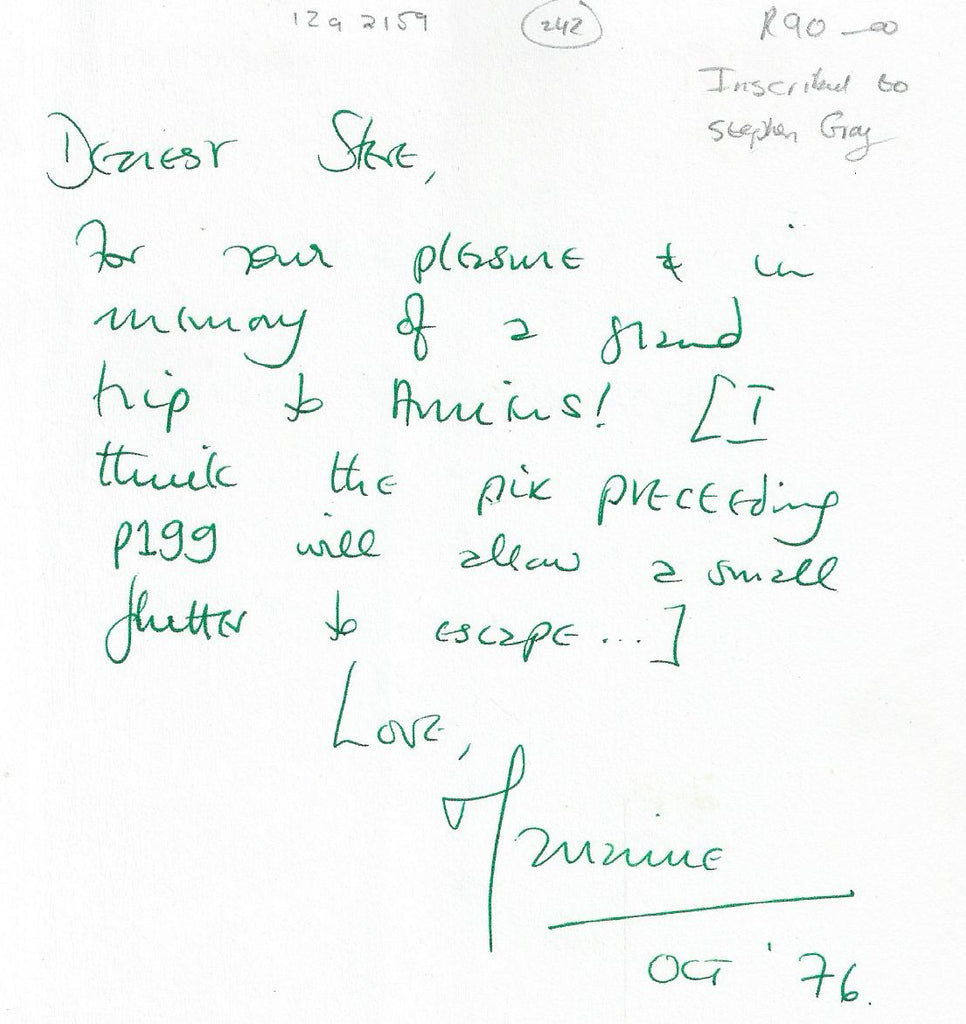 12a 2159 242 R90-00
Inscribed to
Stephen Gray
Dearest Steve,
For your pleasure & in
memory of a grand
trip to Amiens! [I
think the pix preceeding
p199 will allow a small
flutter to escape...]
Love,
Oct '76.